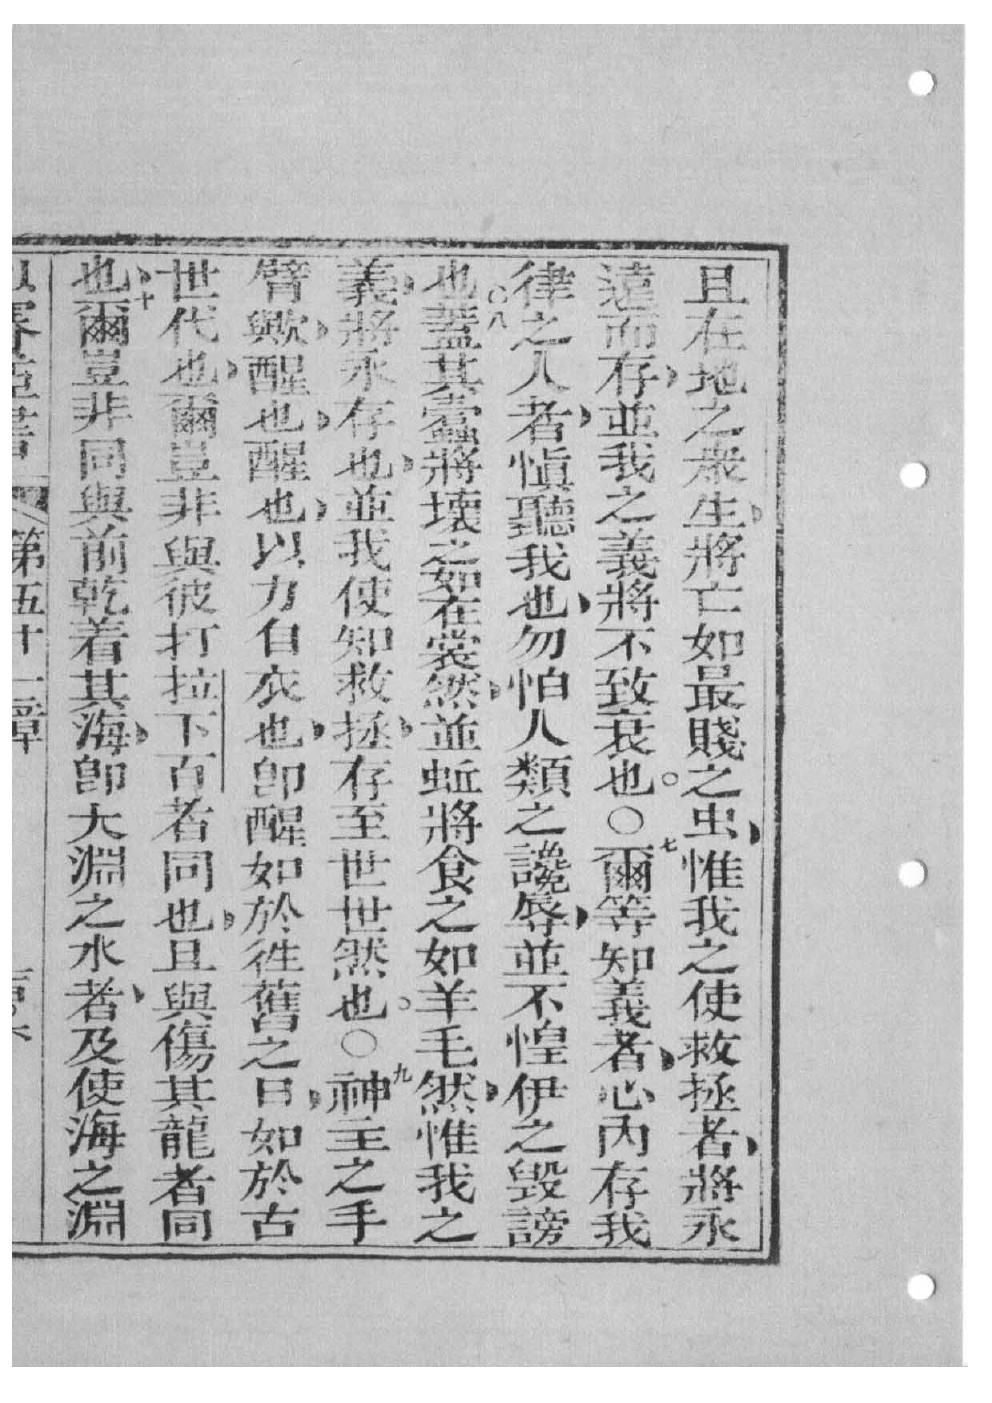 且在地之衆生、將亡如最賤之虫、惟我之使救拯者、將永
遠而存、並我之義將不致衰也。○七爾等知義者、心內存我
律之人者、愼聽我也、勿怕人類之譏辱、並不惶伊之毀謗
也。八蓋其蠹將壞之如在裳然、並蚯將食之如羊毛然、惟我之
義、將永存也、並我使知救拯、存至世世然也。○九神主之手
臂歟、醒也、醒也、以力自衣也、卽醒如於徃舊之日、如於古
世代也、爾豈非與彼打拉下百者同也、且與傷其龍者同
也、十爾豈非同與前乾着其海、卽大淵之水者、及使海之淵
第五十一章